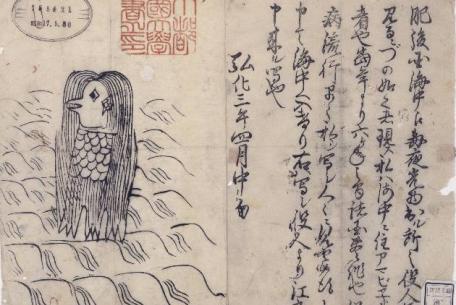 肥後国海中え毎夜光物出ル所之役人
見るニづの如之者現ス私ハ海中ニ住アマビヱ
者也当年より六ヶ年之間諸国豊作也
病流行早々私写シ人々ニ見せ候
申て海中へ入けり右写シ役人より江
申来ル写也
弘化三年四月中旬